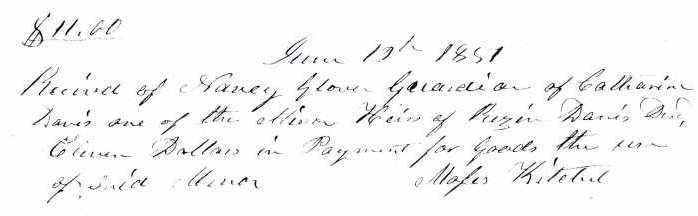 $11.00
June 12th 1851
Recivd of Nancy Glover Gerardian of Catharine
Davis one of the Minor Heirs of Rezin Davis Decd,
Eleven Dollars in Payment for Goods the use
of said Minor Moses Kitchel